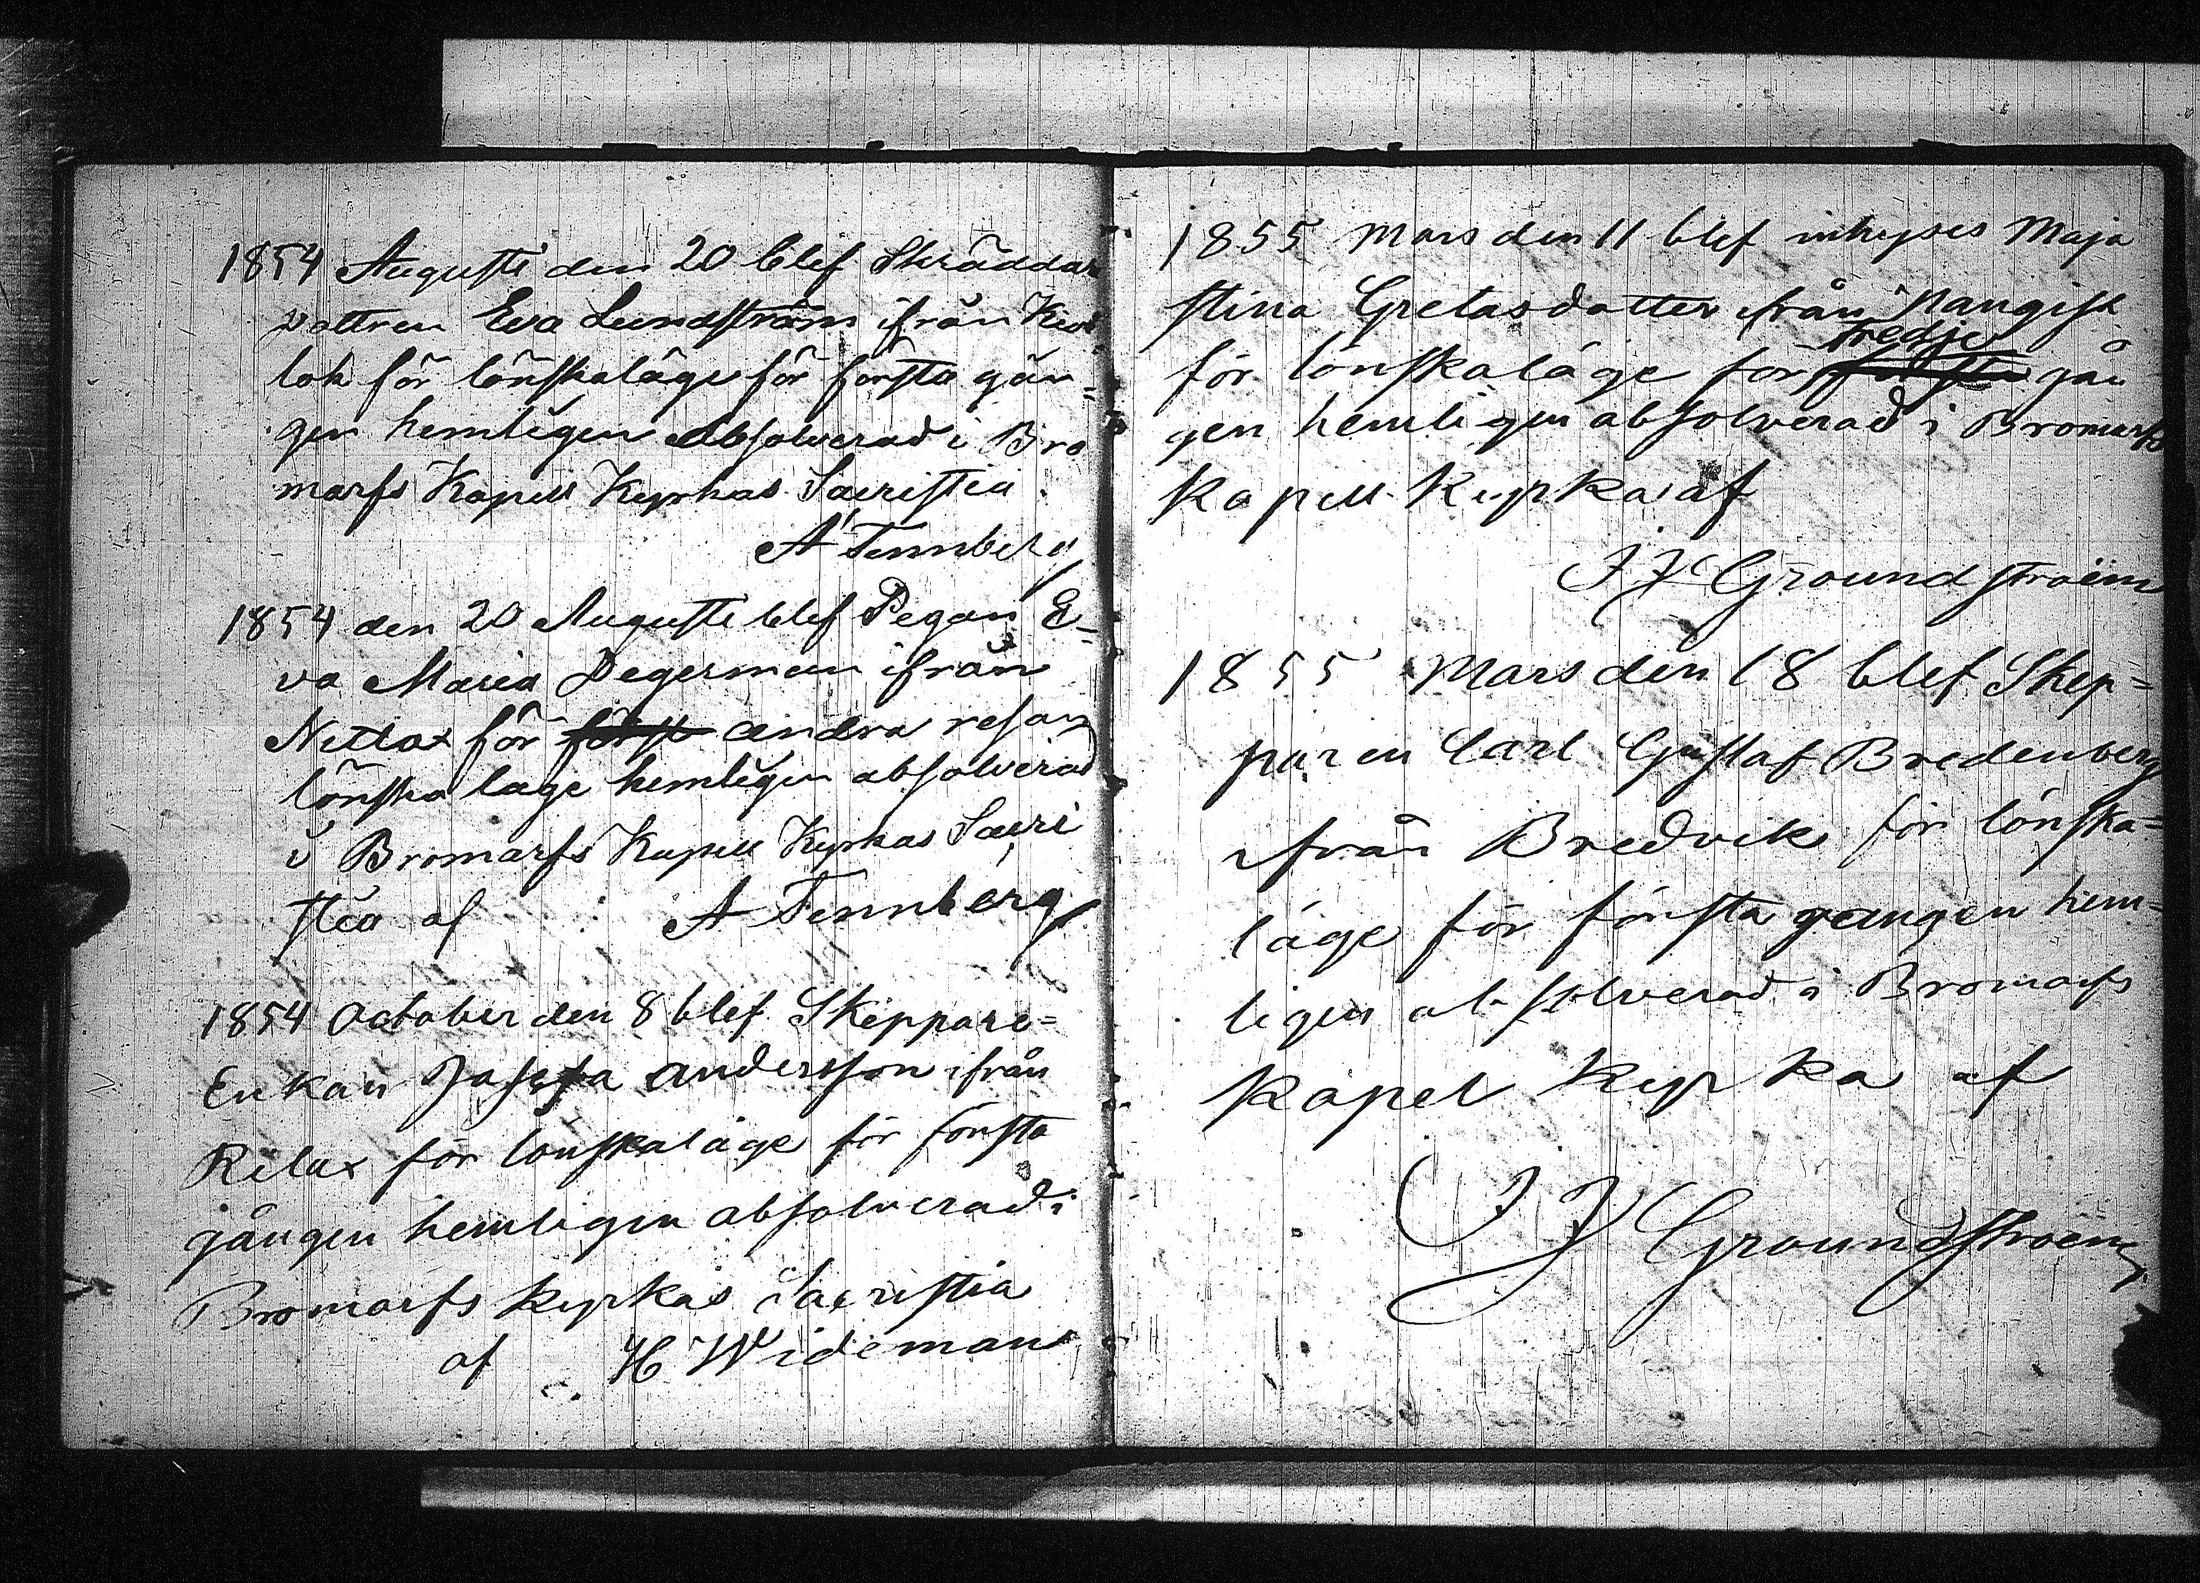 1854 Augusti den 20 blef Skräddar
dottren Eva Lundström ifrån
lok för lönskaläge för första gån-
gen hemligen absolverad i Bro
marfs Kapell Kyrkas Sacristia
A Tennberg
1854 den 20 Augusti blef Pegan E-
va Maria Degerman ifrån
Nettox för först andra resan
lönska läge hemligen absolverad
i Bromarfs Kapell Kyrkas Sacri
stia af A Tennberg
1854 October den 8 blef Skeppare-
Enkan Josefa Andersson ifrån
Rilax för lönskaläge för första
gången hemligen absolverad i
Bromarfs Kyrkas Sacristia
af H Wideman
1855 Mars den 11 blef inhyses Maja
Stina Gretasdotter ifrån
tredje
för lönskaläge för första gån
gen hemligen absolverad i Bromarfs
Kapell Kyrka af
J F Groundstroëm
1855 Mars den 18 blef Skep-
paren Carl Gustaf Bredenberg
ifrån Bredvik för lönska-
läge för första gangen hem-
ligen absolverad i Bromarfs
Kapel Kyrka af
J F Groundstroëm